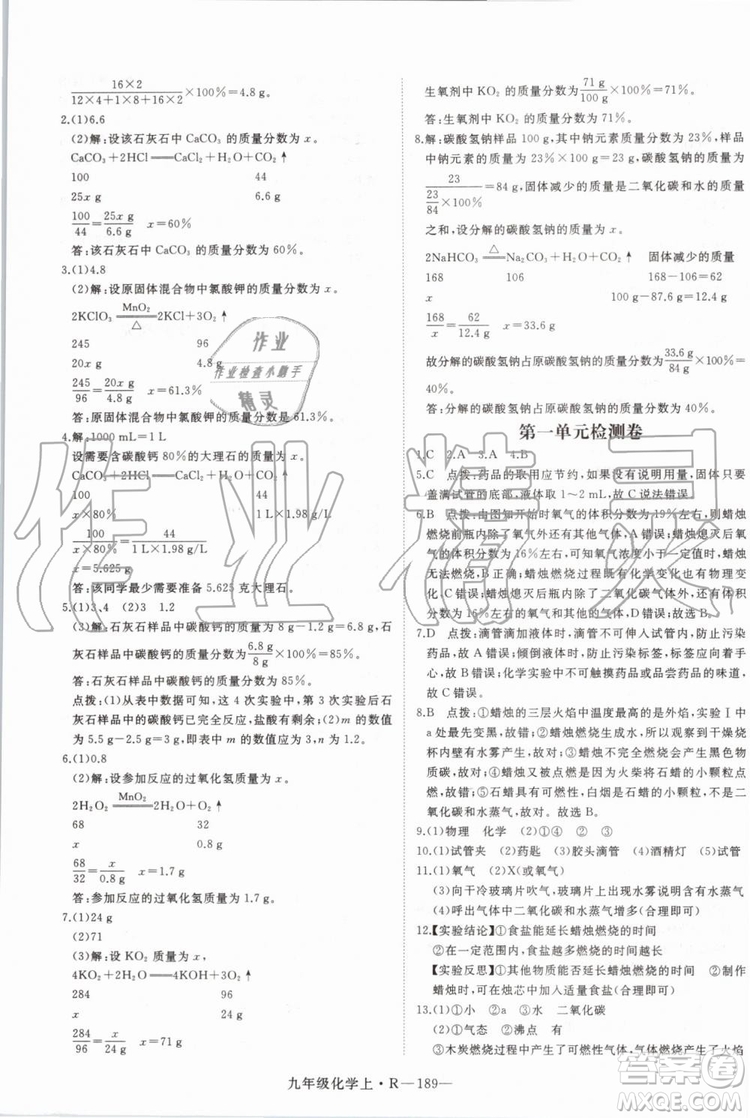 16×2/(12×4+1×8+16×2)×100%=4.8 g。
2.(1)6.6
(2)解:设该石灰石中CaCO₃的质量分数为x。
CaCO₃+2HCl══CaCl₂+H₂O+CO₂↑
100 44
25x g 6.6 g
100/44=25x g/6.6 g x=60%
答:该石灰石中CaCO₃的质量分数为60%。
3.(1)4.8
(2)解:设原固体混合物中氯酸钾的质量分数为x。
2KClO₃ MnO₂══△ 2KCl+3O₂↑
245 96
20x g 4.8 g
245/96=20x g/4.8 g x=61.3%
答:原固体混合物中氯酸钾的质量分数是61.3%。
4.解:1000 mL=1 L
设需要含碳酸钙80%的大理石的质量为x。
CaCO₃+2HCl══CaCl₂+H₂O+CO₂↑
100 44
x×80% 1 L×1.98 g/L
100/(x×80%)=44/(1 L×1.98 g/L)
x=5.625 g
答:该同学最少需要准备5.625克大理石。
5.(1)3、4 (2)3 1.2
(3)解:石灰石样品中碳酸钙的质量为8 g-1.2 g=6.8 g,石
灰石样品中碳酸钙的质量分数为6.8 g/8 g×100%=85%。
答:石灰石样品中碳酸钙的质量分数为85%。
点拨:(1)从表中数据可知,这4次实验中,第3次实验石
灰石样品中的碳酸钙已完全反应,盐酸有剩余;(2)m的数值
为5.5 g-2 g×2=1.2 g,即表中m的数值为1.2。
6.(1)0.8
(2)解:设参加反应的过氧化氢质量为x。
2H₂O₂══2H₂O+O₂↑
68 32
x 0.8 g
68/32=x/0.8 g x=1.7 g
答:参加反应的过氧化氢质量为1.7 g。
7.(1)24 g
(2)71
(3)解:设KO₂的质量为x。
4KO₂+2H₂O══4KOH+3O₂↑
284 96
x 24 g
284/96=x/24 g x=71 g
生氧剂中KO₂的质量分数为71 g/100 g×100%=71%。
答:生氧剂中KO₂的质量分数为71%。
8.解:碳酸氢钠样品100 g,其中钠元素的质量分数为23%,样
品中钠元素的质量为100 g×23%=23 g,碳酸氢钠的质量为
23/(23/84)=84 g,固体减少的质量是二氧化碳和水的质量
之和,设分解的碳酸氢钠的质量为x。
2NaHCO₃══△ Na₂CO₃+H₂O+CO₂↑ 固体减少的质量
168 168-106=62
x 100 g-87.6 g=12.4 g
168/x=62/12.4 g x=33.6 g
故分解的碳酸氢钠占原碳酸氢钠的质量分数为33.6 g/84 g×100%=
40%。
答:分解的碳酸氢钠占原碳酸氢钠的质量分数为40%。
第一单元检测卷
1.C 2.A 3.A 4.B
5.C 点拨:药品的取用应节约,如果没有说明用量,固体只要
盖满试管的底部,液体取1~2 mL,故C说法错误。
6.B 点拨:由图知开始时氧气的体积分数为19%左右,则蜡烛
燃烧前瓶内除了氧气外还有其他气体,A错误;蜡烛熄灭后,氧
气的体积分数为16%左右,所以在氧气体积分数低于16%时,蜡
烛无法燃烧,B正确;蜡烛燃烧过程中既有化学变化,也有物理
变化,C错误;蜡烛熄灭后瓶中除了二氧化碳气体外,还有氧气
和其他气体,D错误。
7.D 点拨:滴管滴加液体时,滴管不可伸入试管内,防止污染
药品,故A错误;倾倒液体时,标签向着手心,防止污染标签,
故B错误;化学实验中不可触摸药品或者品尝药品的味道,
故C错误。
8.B 点拨:①蜡烛的三层火焰中温度最高的是外焰,实验Ⅰ中
a处最先变黑,故错误;②蜡烛燃烧生成水,所以观察到干燥烧
杯内壁有水雾产生,故对;③蜡烛燃烧时,发生化学变化和物
理变化,故错误;④蜡烛可以燃烧,因为火柴将石蜡的小颗粒点
燃,故对;⑤石蜡具有可燃性,白烟是石蜡的小颗粒,不是二
氧化碳和水蒸气,故对。故选B。
9.(1)物理 化学 (2)①④ ② ③
10.(1)试管夹 (2)药匙 (3)胶头滴管 (4)酒精灯 (5)量筒
11.(1)氧气 (2)X(或二氧化碳)
(3)向干冷玻璃片吹气,玻璃片上出现水雾说明有水蒸气
(4)呼出气体中二氧化碳和水蒸气增多了
12.【实验结论】①食盐能延长蜡烛燃烧的时间
②在一定范围内,食盐越多燃烧的时间越长
【实验反思】①影响实验的因素很多,需要做多次实验
②制作蜡烛时,可在烛芯中加入适量食盐(合理即可)
13.(1)①小 ②a ③水 二氧化碳
(2)①气态 ②沸点 有
③木炭燃烧没有产生气体,蜡烛燃烧产生的气体产生了火焰
九年级化学上·R—189—
作业
作业检查小助手
精灵
作业精灵
答案圈